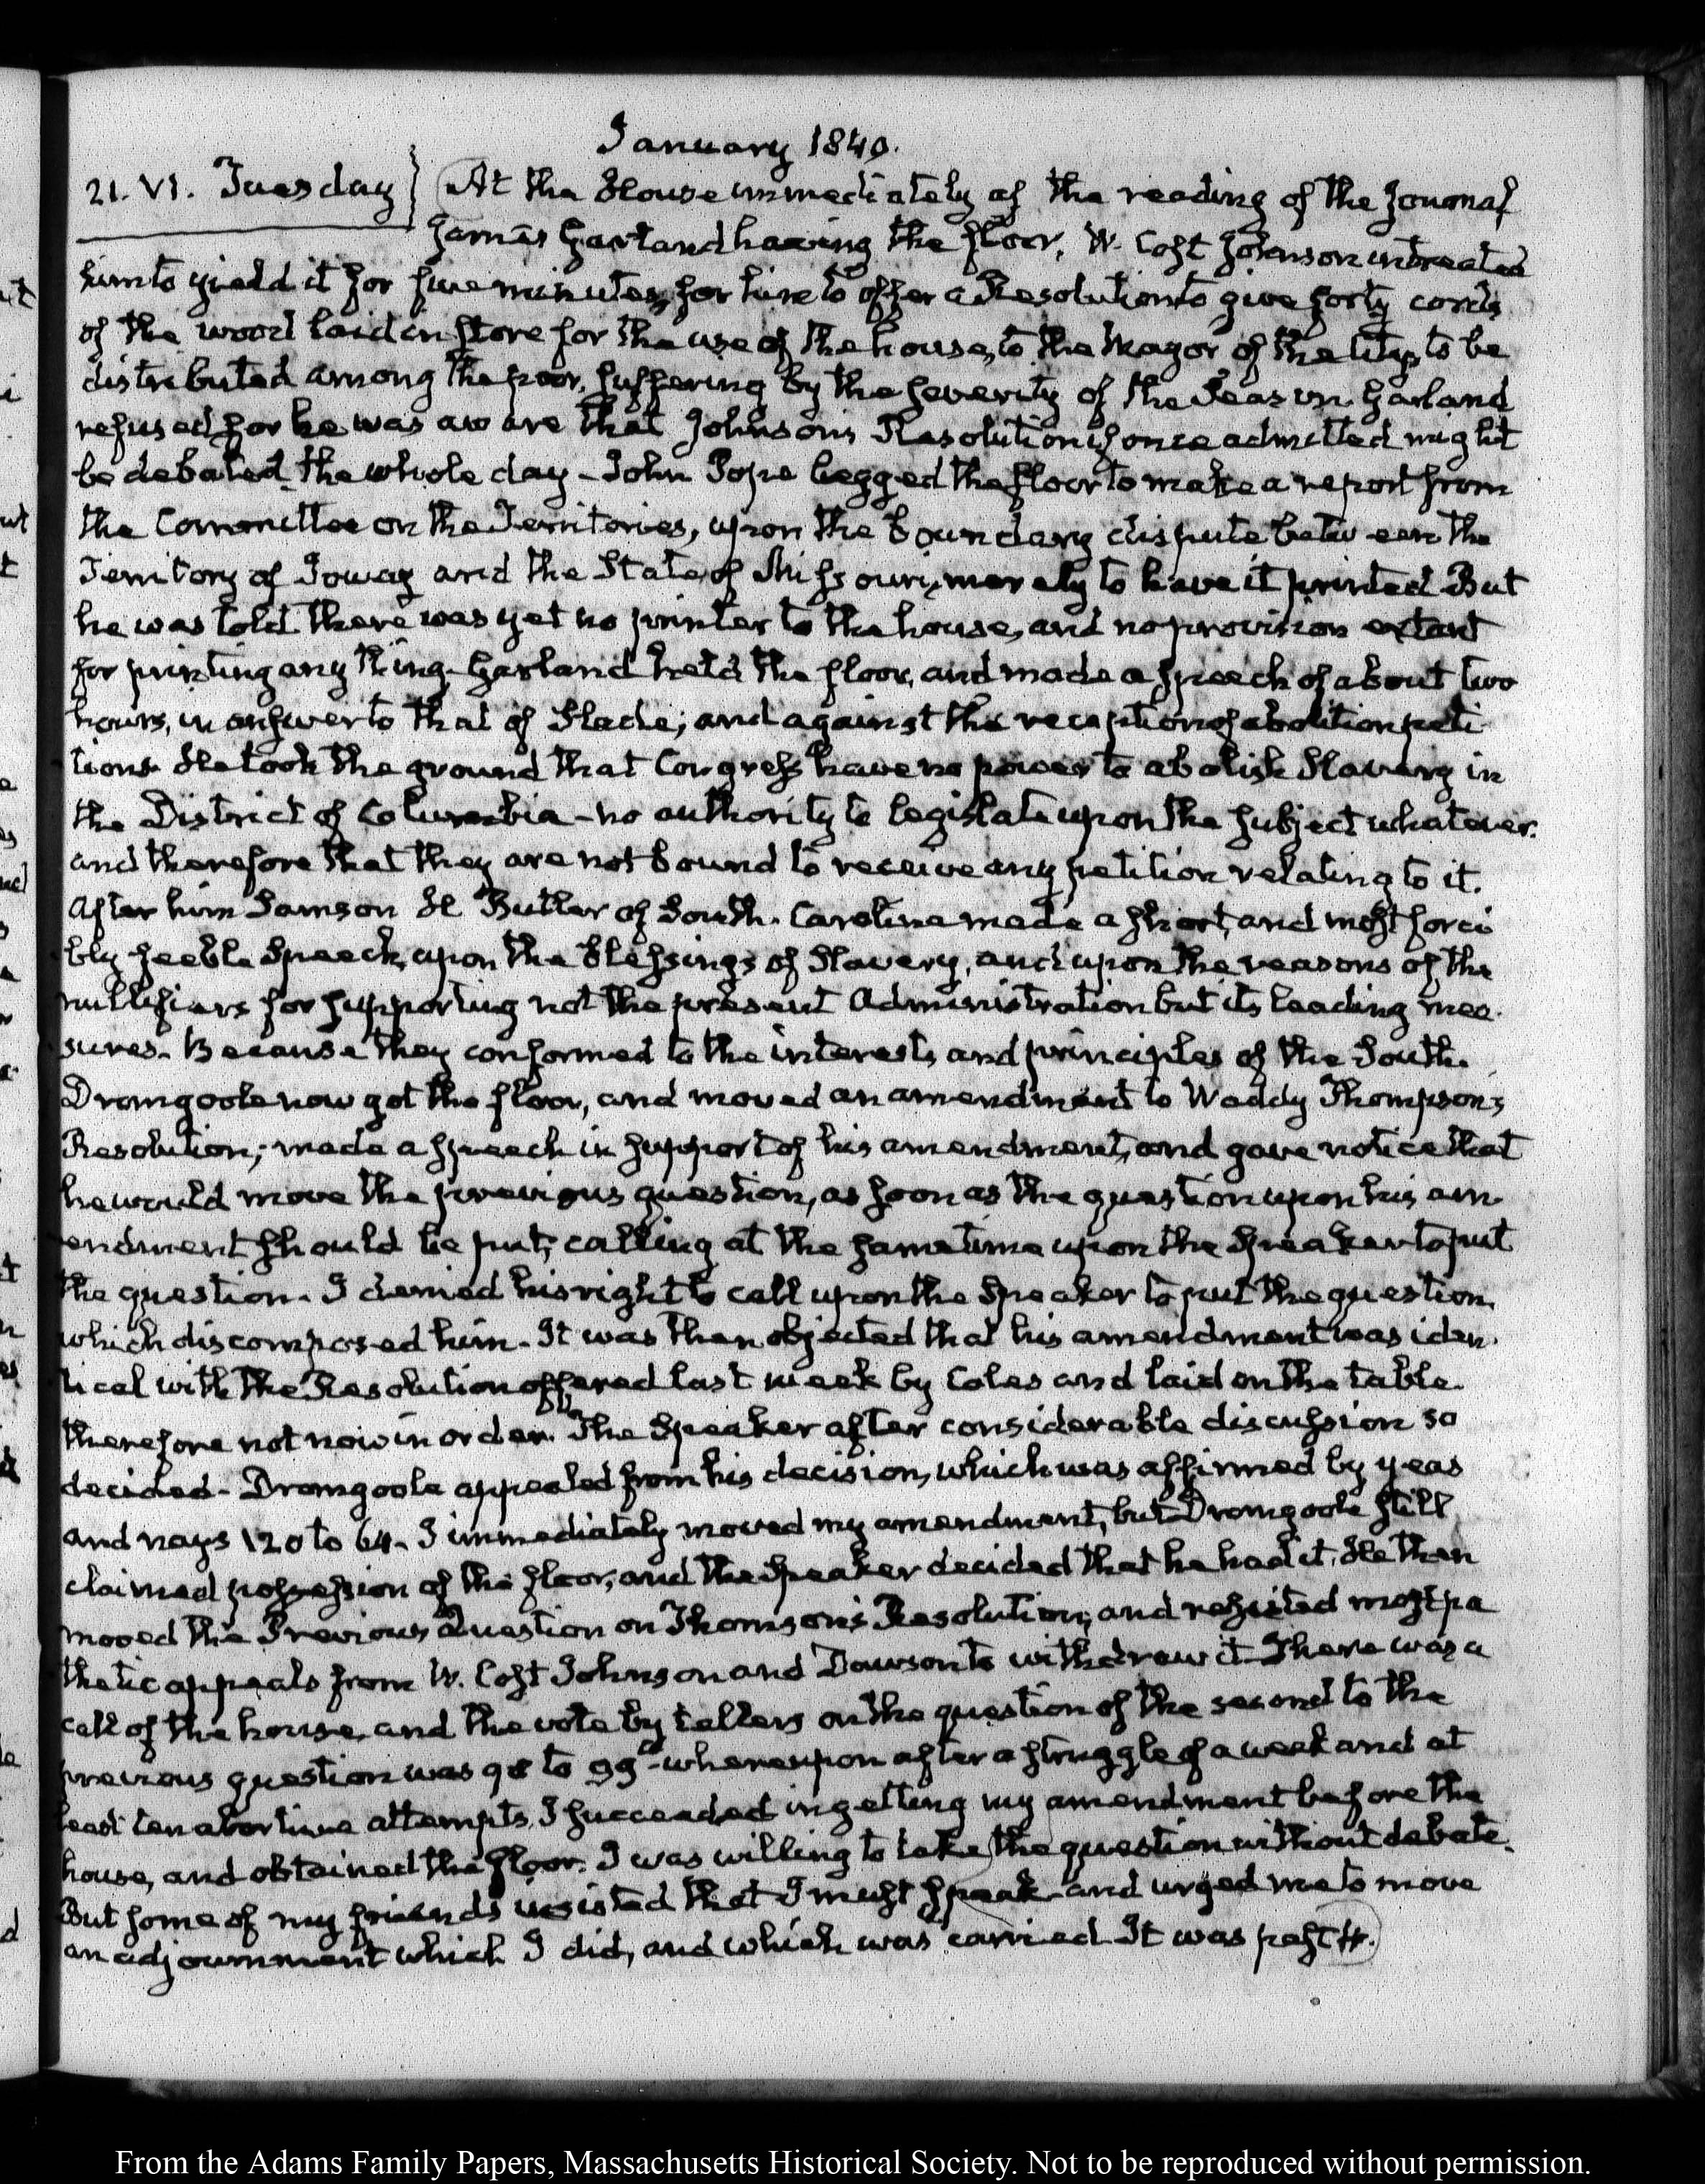 January 1840.
21. VI. Tuesday} At the House immediately of the reading of the Journal
James Garland having the floor, W. Cost Johnson intreated
him to yield it for five minutes, for him to offer a Resolution to give forty cords
of the wood laid in store for the use of the house, to the Mayor of the City, to be
distributed among the poor, suffering by the severity of the Season. Garland
refused for he was aware that Johnson's Resolution if once admitted might
be debated the whole day - John Pope begged the floor to make a report from
the Committee on the Territories, upon the boundary dispute between the
Territory of Ioway and the State of Missouri, merely to have it printed But
he was told there was yet no printer to the house, and no provision extant
for printing any thing. Garland held the floor, and made a speech of about two
hours, in answer to that of Slade; and against the reception of abolition peti-
tions. He took the ground that Congress have no power to abolish Slavery in
the District of Columbia - no authority to legislate upon the subject whatever.
and therefore that they are not bound to receive any petition relating to it.
After him Samson H Butler of South-Carolina made a short, and most forci
bly feeble Speech, upon the blessings of Slavery, and upon the reasons of the
nullifiers for supporting not the present Administration but its leading mea-
sures. Because they conformed to the interests and principles of the South.
Dromgoole now got the floor, and moved an amendment to Waddy Thompson's
Resolution; made a speech in support of his amendment, and gave notice that
he would move the previous question, as soon as the question upon his am-
endment should be put; calling at the same time upon the Speaker to put
the question. I denied his right to call upon the Speaker to put the question,
which discomposed him. It was then objected that his amendment was iden-
tical with the Resolution offered last week by Coles and laid on the table.
therefore not now in order. The Speaker after considerable discussion so
decided - Dromgoole appealed from his decision, which was affirmed by yeas
and nays 120 to 64. I immediately moved my amendment, but Dromgoole still
claimed possession of the floor, and the Speaker decided that he had it. He then
moved the Previous Question on Thomson's Resolution; and resisted most pa
thetic appeals from W. Cost Johnson and Dawson to withdraw it. There was a
call of the house, and the vote by tellers on the question of the second to the
previous question was to 99 - whereupon after a struggle of a week and at
least ten abortive attempts, I succeeded in getting my amendment before the
house, and obtained the floor. I was willing to take the question without debate.
But some of my friends insisted that I must speak and urged me to move
an adjournment which I did, and which was carried. It was past 4.
From the Adams Family Papers, Massachusetts Historical Society. Not to be reproduced without permission.